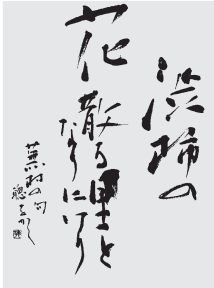 渋柿の
花散る里と
なりにけり
蕪村の句